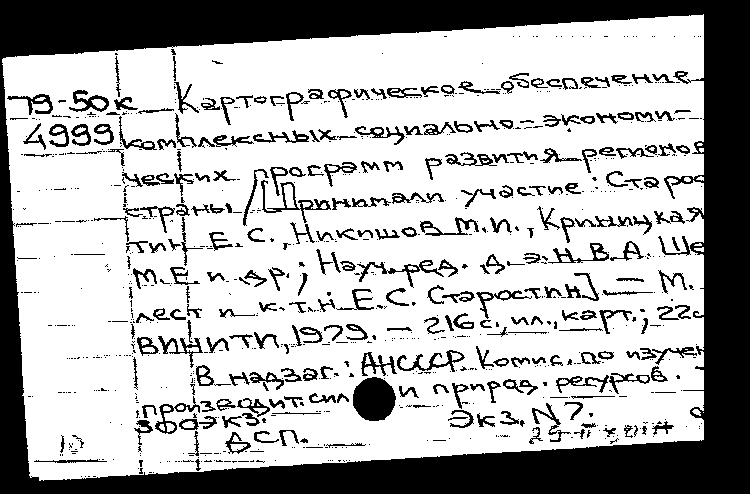 79-50к Картографическое обеспечение
4999 комплексных социально-экономи-
ческих программ развития регионов
страны / [Принимали участие: Старос
тин Е.С., Никишов М.И., Криницкая
М.Е. и др.; Науч. ред. д.э.н. В.А. Ше
лест и к.т.н Е.С. Старостин]. — М.
ВИНИТИ, 1979. — 216 с., ил., карт.; 22с
В надзаг.: АН СССР Комис. по изучен
производит. сил и природ. ресурсов.
300 экз. Экз. N 7.
10 ДСП.